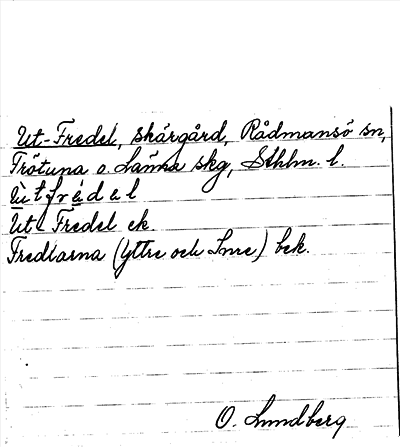 Ut-Fredel, skärgård, Rådmansö sn,
Frötuna o. Länna skg, Sthlm. l.
ùtfrádal
Ut-Fredel ek.
Fredlarna (Yttre och Inre) bek.
O. Lundberg